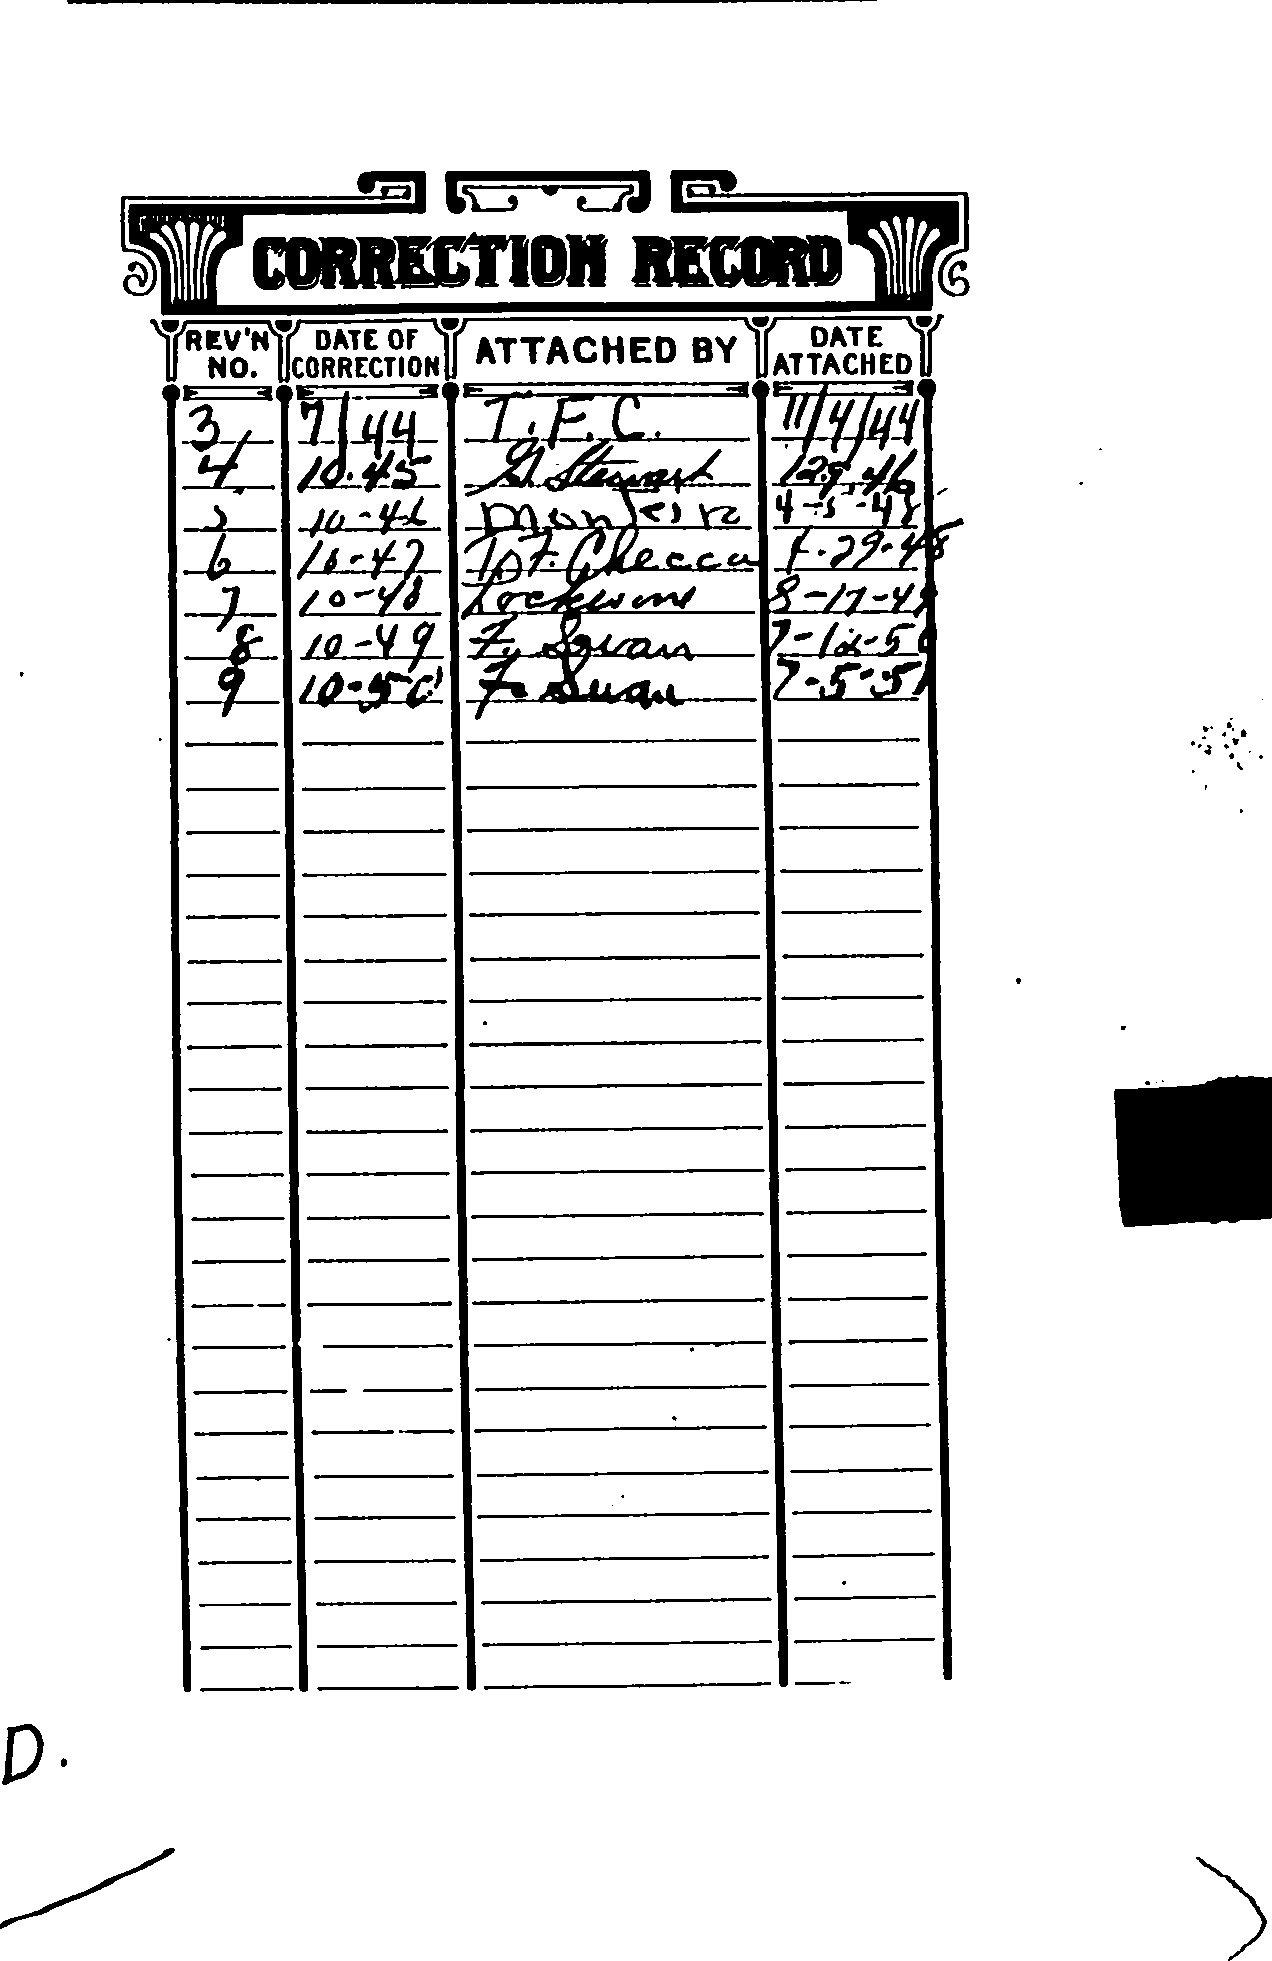 CORRECTION RECORD
REV'N NO. DATE OF CORRECTION ATTACHED BY DATE ATTACHED
3 7/44 T.F.C. 11/4/44
4 10-45 Stewart 1-29-46
10-46 4-5-48
6 10-47 T.F. Checca 1-29-48
7 10-48 Lockwood 8-17-49
8 10-49 F. Swan 7-12-50
9 10-50 F. Swan 7-5-51
D.